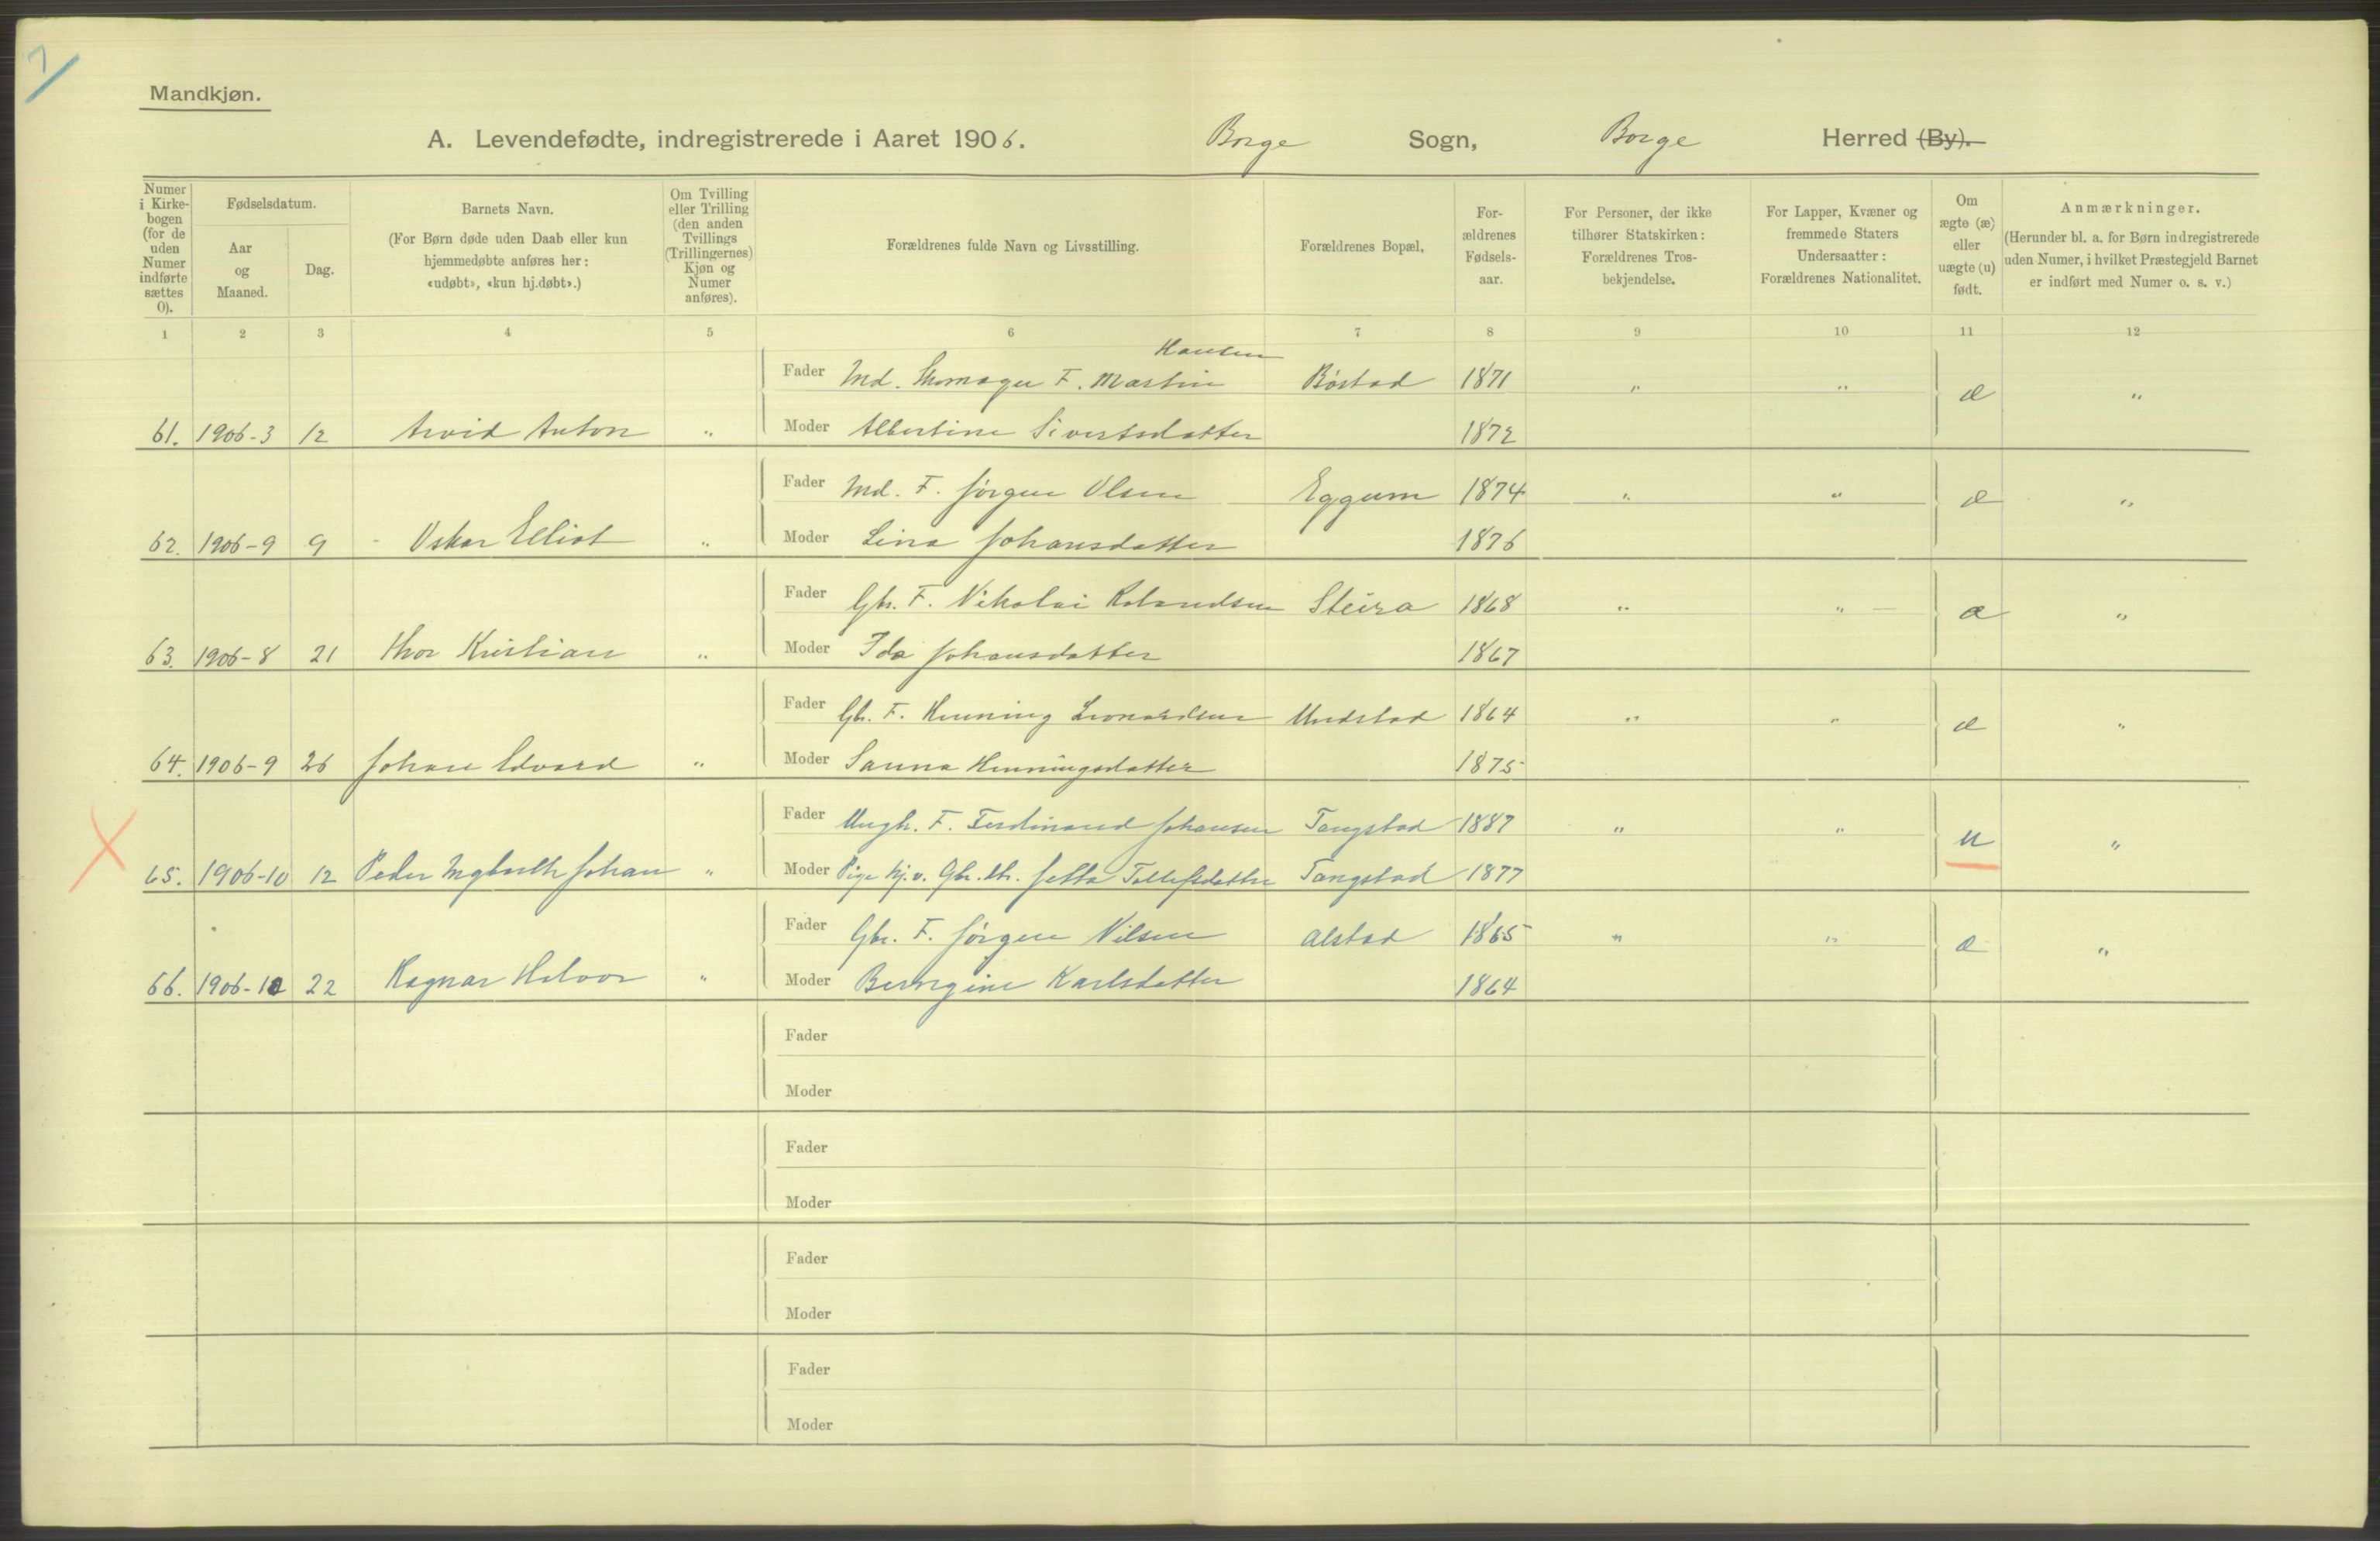 7
Mandkjøn.
A. Levendefødte, indregistrerede i Aaret 1906. Borge Sogn, Borge Herred (By).
Numer i Kirkebogen (for de uden Numer indførte sættes 0).
Fødselsdatum.
Aar og Maaned.
Dag.
Barnets Navn.
(For Børn døde uden Daab eller kun hjemmedøbte anføres her: «udøbt», «kun hj.døbt».)
Om Tvilling eller Trilling (den anden Tvillings (Trillingernes) Kjøn og Numer anføres).
Forældrenes fulde Navn og Livsstilling.
Forældrenes Bopæl.
Forældrenes Fødselsaar.
For Personer, der ikke tilhører Statskirken: Forældrenes Trosbekjendelse.
For Lapper, Kvæner og fremmede Staters Undersaatter: Forældrenes Nationalitet.
Om ægte (æ) eller uægte (u) født.
Anmærkninger.
(Herunder bl. a. for Børn indregistrerede uden Numer, i hvilket Præstegjeld Barnet er indført med Numer o. s. v.)
1 2 3 4 5 6 7 8 9 10 11 12
Hansen
Fader Md. F. Martin Bøstad 1871 " " æ "
61. 1906-3 12 Arvid Anton " Moder Albertine Sivertsdatter 1872
Fader Md. F. Jørgen Olsen Eggum 1874 " " æ "
62. 1906-9 9 Oskar Elliot " Moder Lina Johansdatter 1876
Fader Gbr. F. Nikolai Rolandsen Steira 1868 " " æ "
63. 1906-8 21 Thor Kristian " Moder Ida Johansdatter 1867
Fader Gbr. F. Henning Leonardsen Undstad 1864 " " æ "
64. 1906-9 26 Johan Edvard " Moder Sanna Henningsdatter 1875
Fader Ungk. F. Ferdinand Johansen Tangstad 1887 " " u "
65. 1906-10 12 Peder Johan " Moder Pige hj.v. Gbr. Tollefsdatter Tangstad 1877
Fader Gbr. F. Jørgen Nilsen Alstad 1865 " " æ "
66. 1906-10 22 Ragnar Halvor " Moder Berngine Karlsdatter 1864
Fader
Moder
Fader
Moder
Fader
Moder
Fader
Moder